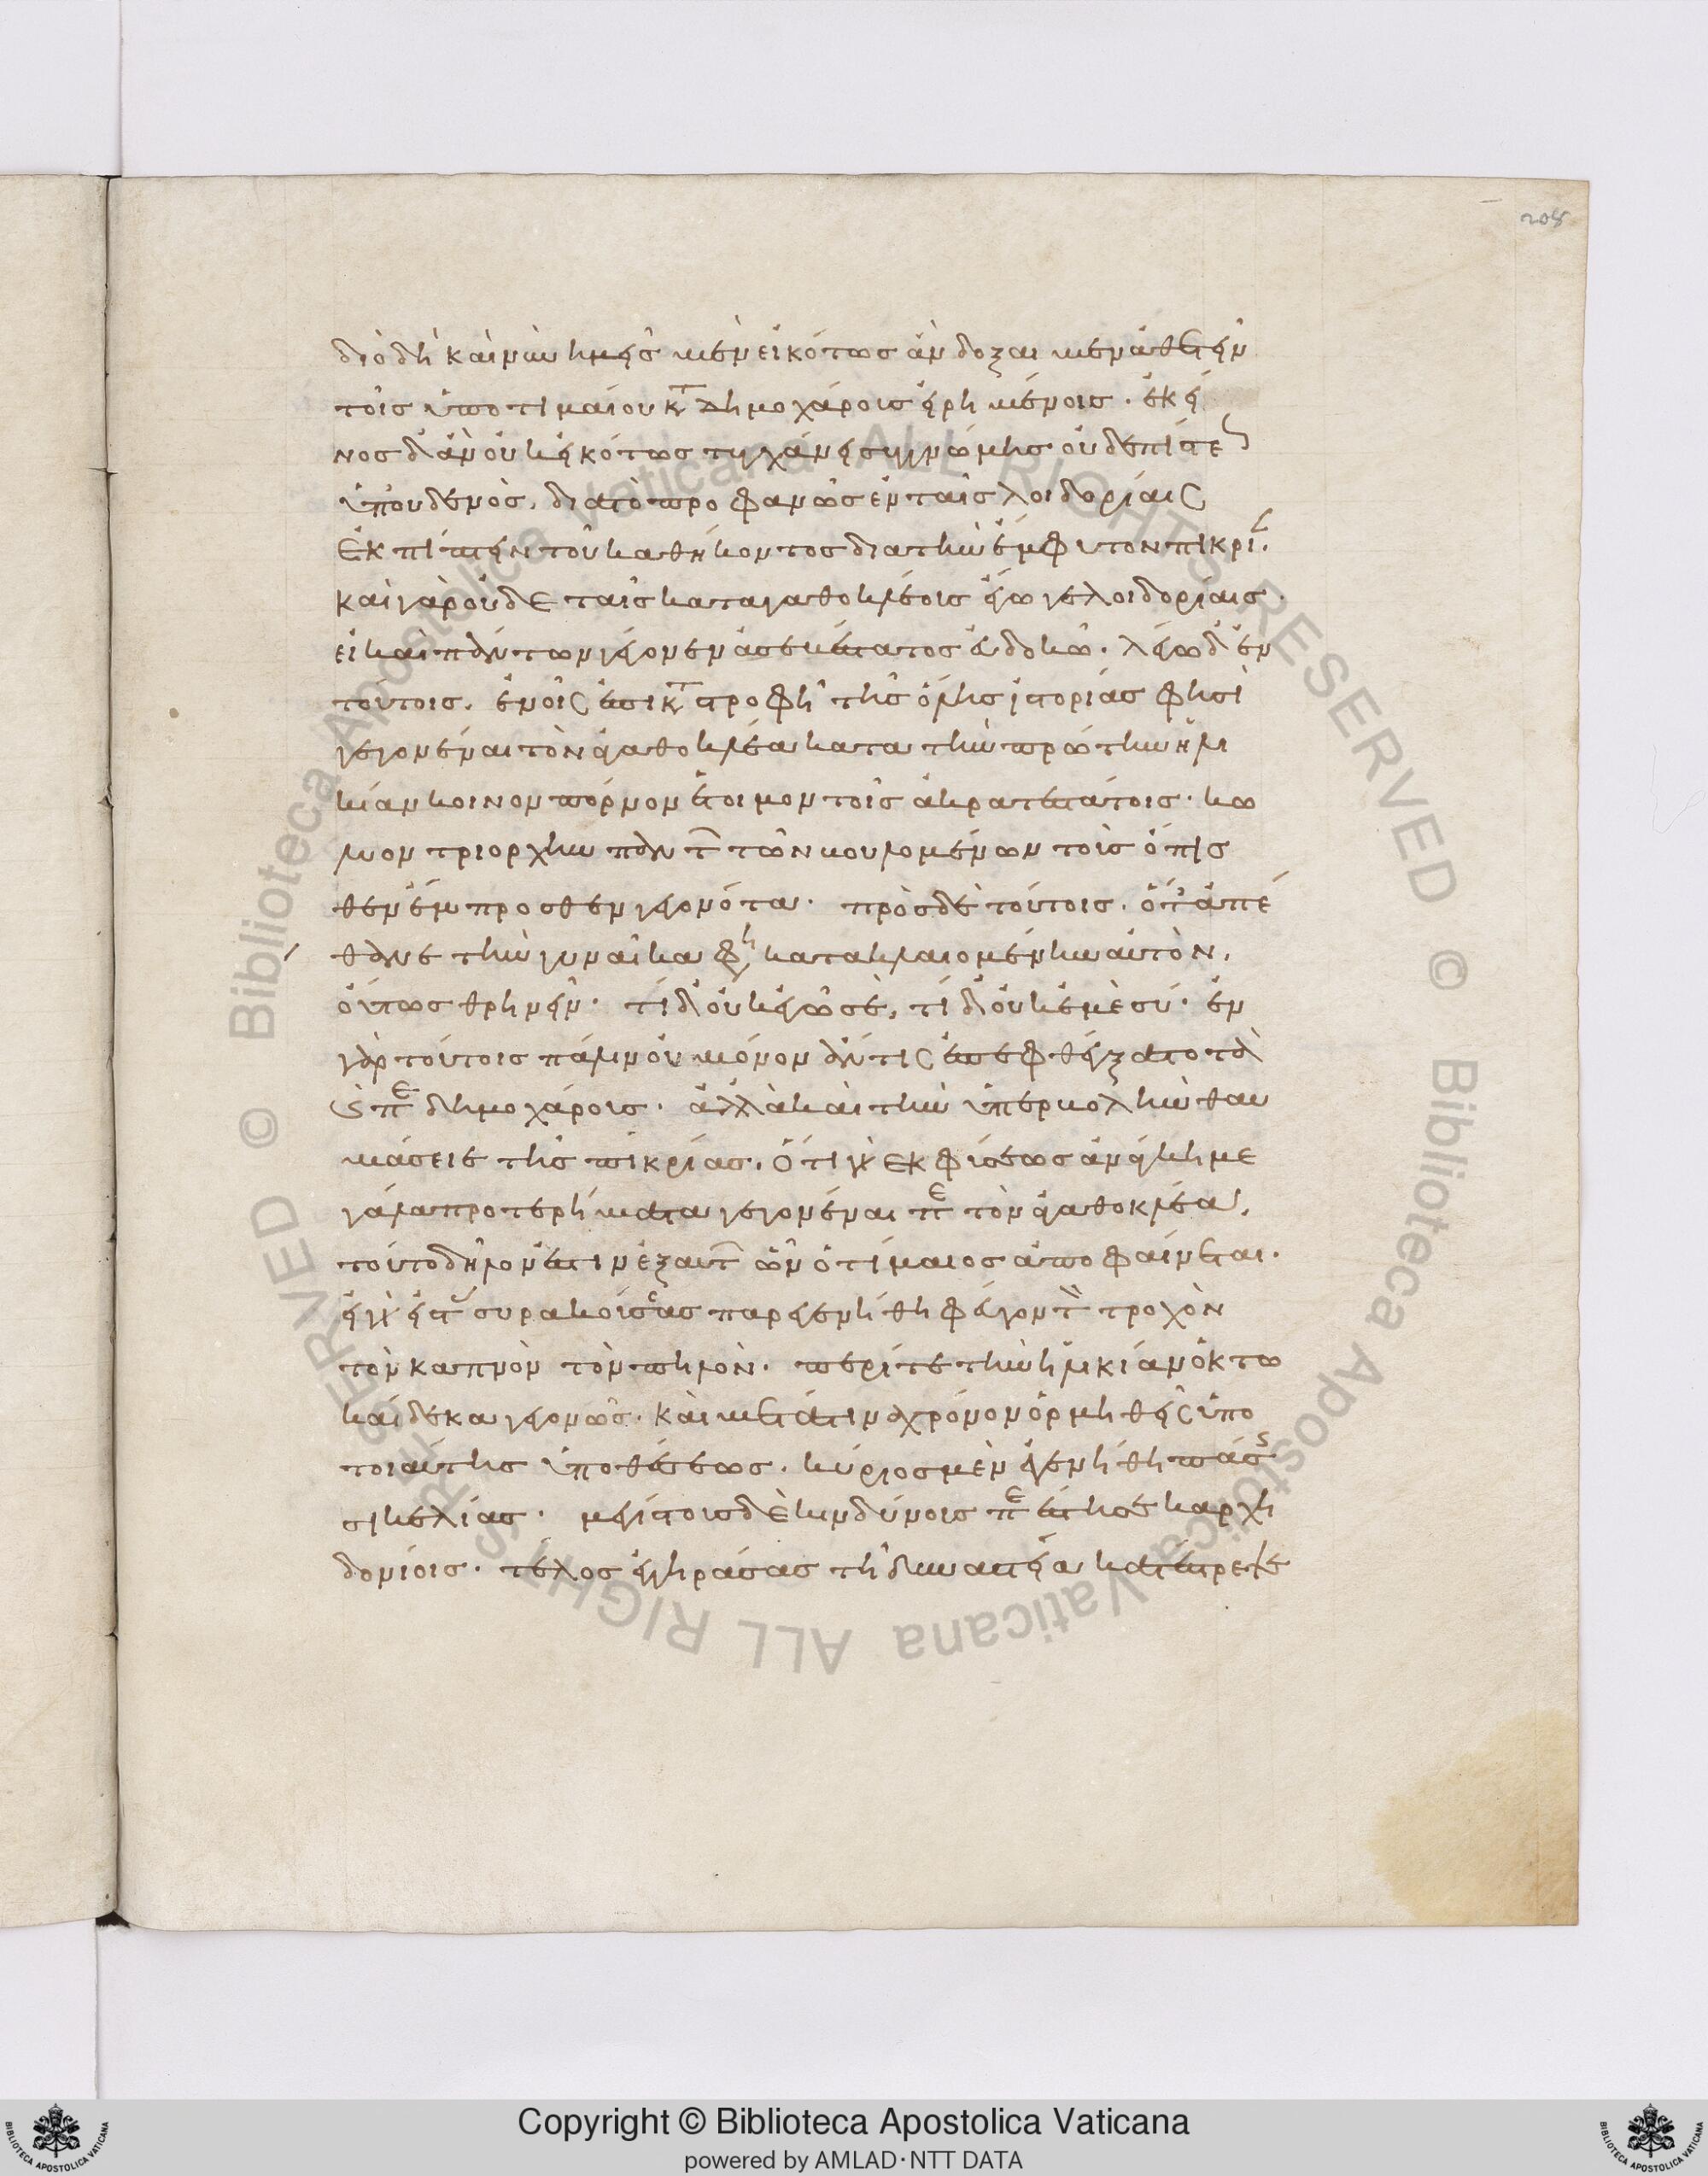 διὸ δὴ καὶ νῦν ἡμεῖς μὲν εἰκότως ἂν δοξαιμεν ἀθετεῖν
τοῖς ὑπο τιμαίου κτ Δημοχάρους εἰρημένοις. ἐκεί
νος δ' ἂν οὐκ εἰκότως τυγχάνει συγγνώμης οὐδὲ πίστε
ὑπ' οὐδενὸς. διατὸ προφανῶς ἐν ταῖς λοιδορίαις
ἐκπίπτειν τοῦ καθήκοντος δια τὴν ἔμφυτον πικρί.
καὶ γὰρ οὐδε ταῖς κατ αγαθοκλέους ἔγωγε λοιδορίαις.
εἰ καὶ πάντων γέγονεν ἀσεβέστατος εὐδοκῶ. λέγω δ' ἐν
τούτοις. ἐν οἷς ἐπι κτστροφῆ τῆς ὅλης ἱστορίας φησὶ
γεγονέναι τὸν ἀγαθοκλέα κατα τὴν πρώτην ἡλι
κίαν κοινον πόρνον ἕτοιμον τοῖς ἀκρατεστάτοις. κω
λυον τριορχην πάντ τῶν βουλομένων τοῖς ὄπισ
θεν ἔμπροσθεν γεγονότα. πρὸς δὲ τούτοις. ὅτ' ἀπέ
θανε τὴν γυναῖκα φη κατακλαιομένην αὐτὸν.
οὕτως θρηνεῖν. τί δ' οὐκ ἐγὼ σὲ, τί δ' οὐκ ἐμὲ σύ. ἐν
γὰρ τούτοις πάλιν οὐ μόνον ἄν τις ἐπεφθέγξατο τὰ
ϗ πε δημοχάρους. ἀλλὰ καὶ τὴν ὑπερβολὴν θαυ
μάσειε τῆς πικρίας. ὅτι γὰρ ἐκ φύσεως ἀνάγκη με
γάλα προτερήματα γεγονέναι πε τὸν ἀγαθοκλέα,
τοῦτο δῆλον ἐστιν ἐξ αυτ ὧν ὁ τίμαιος ἀποφαίνεται.
εἰ γὰρ εἰς τ συρακούσας παρεγενήθη φεύγοντ τροχὸν
τὸν καπνὸν τὸν πηλὸν. περί τε τὴν ἡλικίαν ὀκτω
καίδεκα γεγονὼς. καὶ μετά τινα χρόνον ὁρμηθεὶς ὑπο
τοιαύτης ὑποθέσεως. κύριος μὲν ἐγενήθη πάσς
σικελίας. μεγίστους δὲ κινδύνους πε έστησε καρχη
δονίοις. τέλος ἐγγηράσας τῇ δυναστεία κατέστρεψε